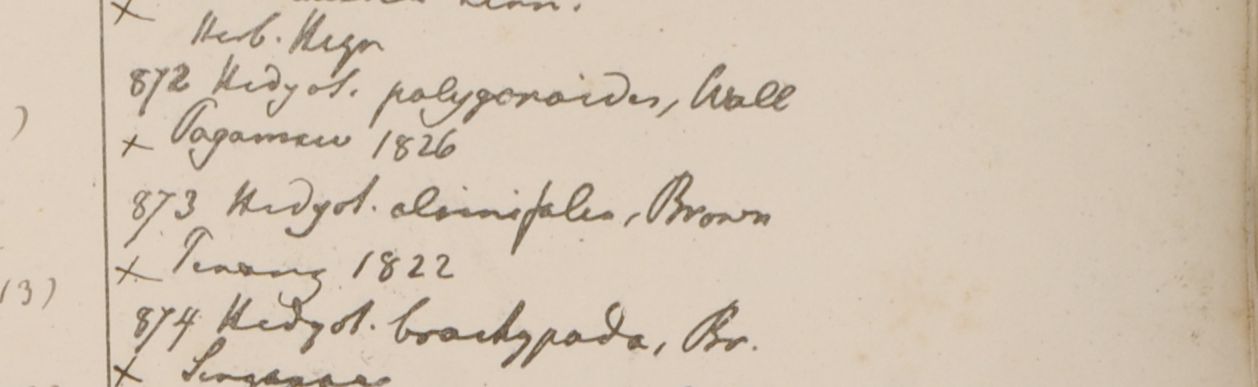 Herb. Heyn
872 Hedyot. polygonoides, Wall
x Pagamew 1826
873 Hedyot. alsinifolia, Brown
x Penang 1822
874 Hedyot. brachypoda, Br.
x Singapore
13)